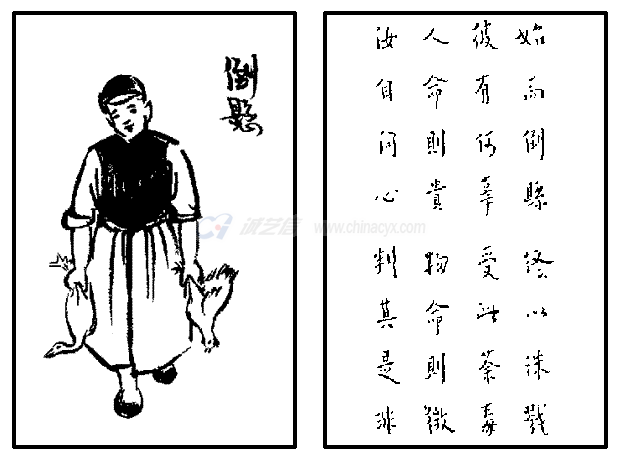 倒懸
始而倒縣 終以誅戮
彼有何辜 受此荼毒
人命則貴 物命則微
汝自问心 判其是非
诚艺信 www.chinacyx.com